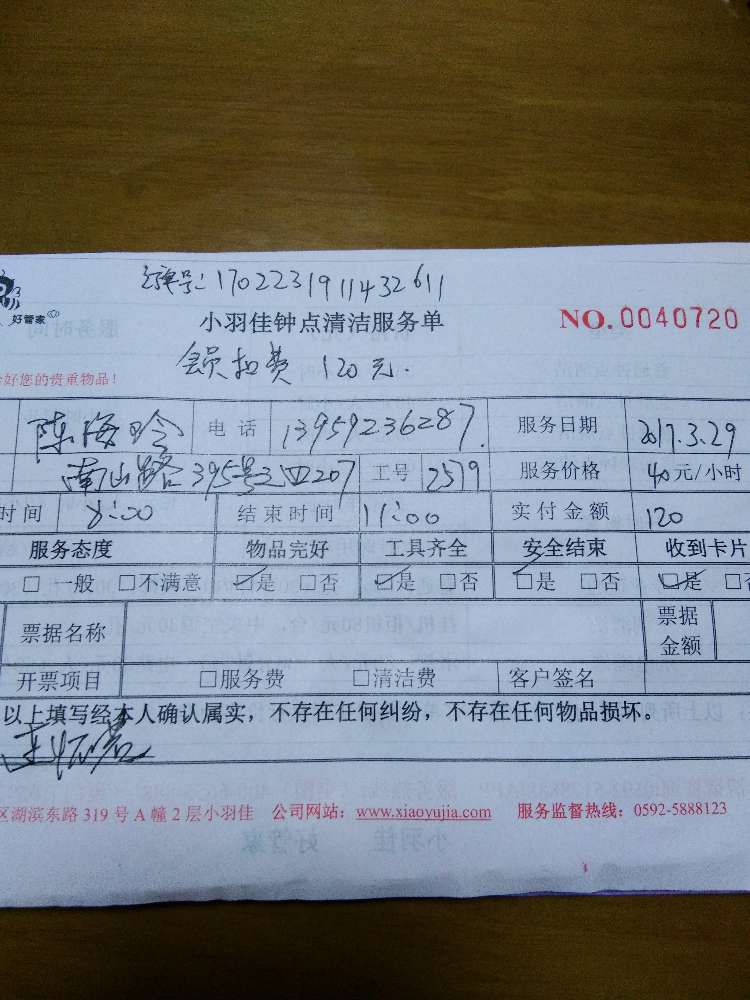 订单号:1702231911432611
好管家
小羽佳钟点清洁服务单
NO.0040720
会员扣费 120元.
好您的贵重物品!
陈海玲 电话 13959236287. 服务日期 2017.3.29
南山路395号之四207 工号 2579 服务价格 40元/小时
时间 8:00 结束时间 11:00 实付金额 120
服务态度 物品完好 工具齐全 安全结束 收到卡片
□ 一般 □不满意 ☑是 □否 ☑是 □否 ☑是 □否 ☑是 □否
票据名称 票据金额
开票项目 □服务费 □清洁费 客户签名
以上填写经本人确认属实，不存在任何纠纷，不存在任何物品损坏。
区湖滨东路 319 号 A 幢 2 层小羽佳 公司网站：www.xiaoyujia.com 服务监督热线：0592-5888123